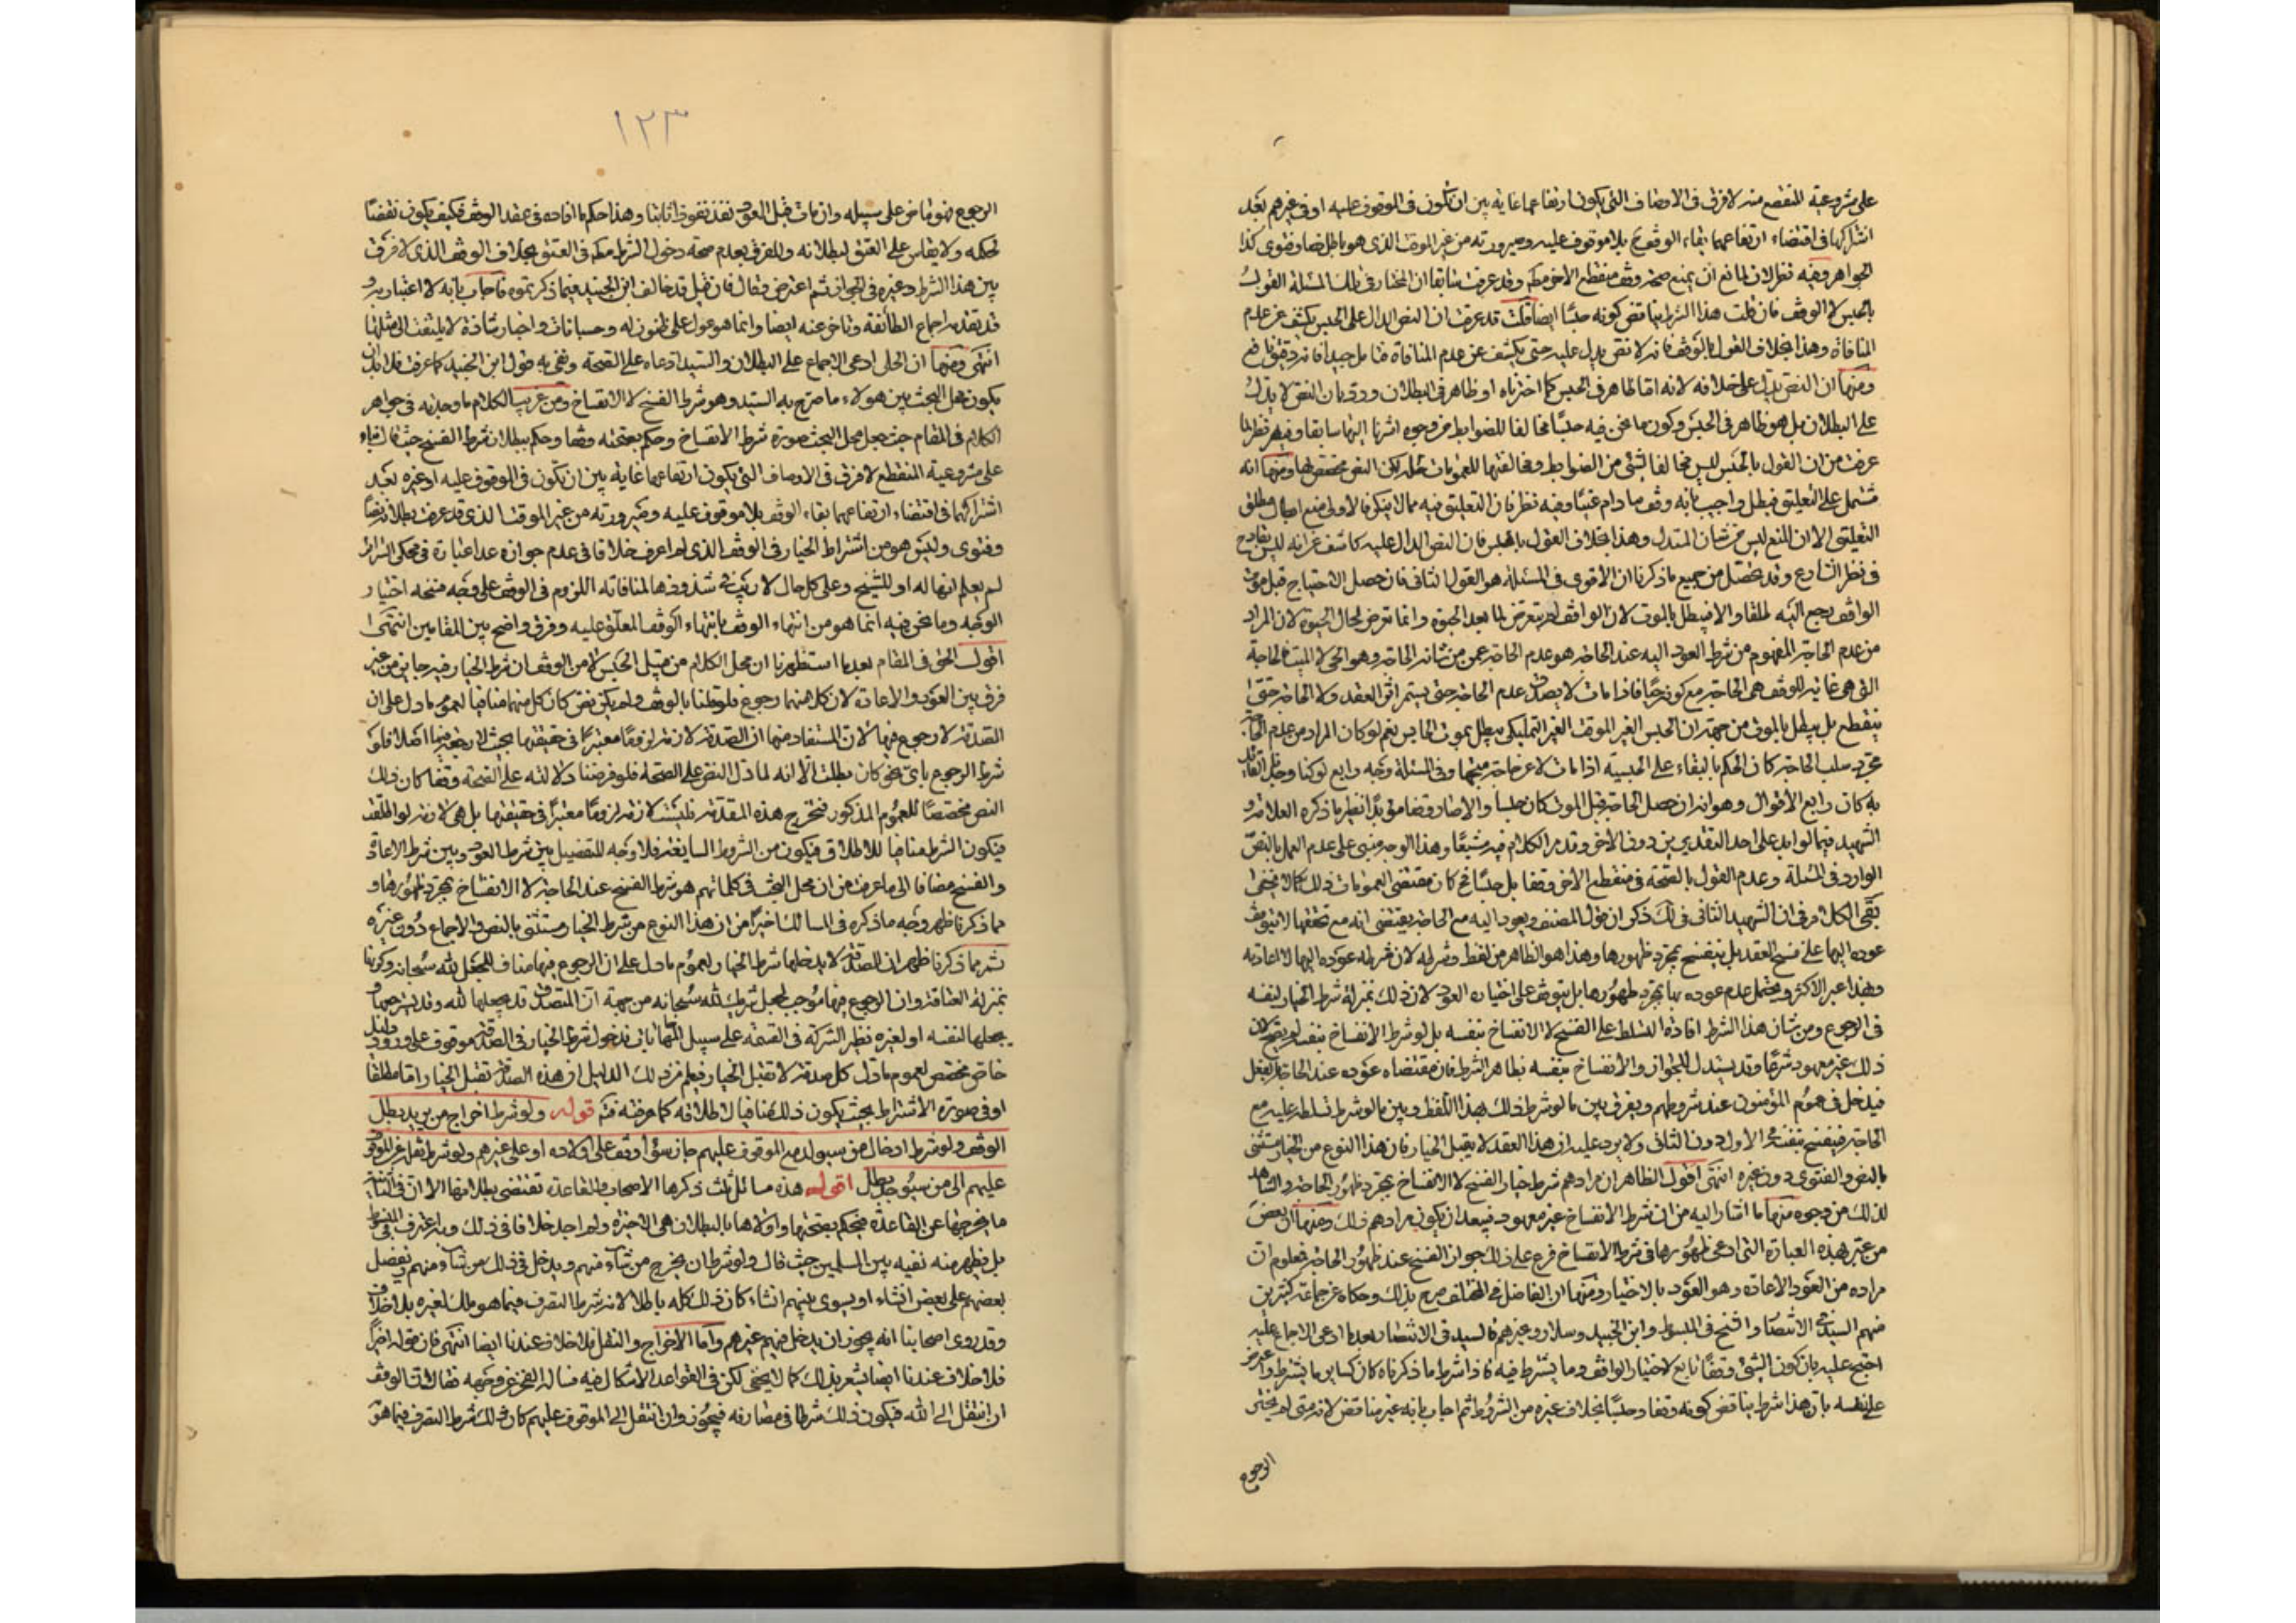 على مشروعية المنقطع منه لا فرق فى الاوصاف التى يكون ارتفاعها غاية بين ان تكون فى الموقوف عليه او فى غيرهم بعد
اشتراكها فى اقتضاء ارتفاعهما بقاء الوقف ح بلا موقوف عليه وصيرورته من غير الموقت الذى هو باطل نصا وفتوى كذا
الجواهر وفيه نظر لان لمانع ان يمنع صحة وقف منقطع الاخر وقد عرفت سابقا ان المختار فى تلك المسئلة القول
بالحبس لا الوقف فان قلت هذا الشرط يناقض كونه حبسًا ايضا قلت قد عرفت ان النص الدال على الحبس يكشف عن عدم
المنافاة وهذا بخلاف القول بالوقف فانه لا نص يدل عليه حتى يكشف عن عدم المنافاة فتامل جيدا فانه دقيق نافع
ومنها ان النص يدل على خلافه لانه اما ظاهر فى الحبس كما اخترناه او ظاهر فى البطلان ورد بان النص لا يدل
على البطلان بل هو ظاهر فى الحبس وكون ما نحن فيه حبسًا مخالفا للضوابط من وجوه اشرنا اليها سابقا وفيه نظر لما
عرفت من ان القول بالحبس ليس مخالفا لشئ من الضوابط ومخالفتها للعمومات لكن النص مخصص لها ومنها انه
مشتمل على التعليق فيبطل واجيب بانه وقف ما دام غنيًا وفيه نظر فان التعليق فيه مما لا ينكر فالاولى منع ابطال مطلق
التعليق الا ان المنع ليس من شان المستدل وهذا بخلاف القول بالحبس فان النص الدال عليه كاشف عن انه ليس بقادح
فى نظر الشارع وقد تحصل من جميع ما ذكرنا ان الاقوى فى المسئلة هو القول الثانى فان حصل الاحتياج قبل موت
الواقف يرجع اليه لملقا والا فيبطل بالموت لان الواقف لم يتعرض لما بعد الحيوة وانما تعرض لحال الحيوة لان المراد
من عدم الحاجة المفهوم من شرط العود اليه عند الحاجة هو عدم الحاجة عمن من شانه الحاجة وهو الحى لا الميت فالحاجة
التى هى غاية للوقف هى الحاجة مع كونه حيًا فاذا مات لا يصدق عدم الحاجة حتى يستمر اثر العقد ولا الحاجة حتى
ينقطع بل يبطل بالموت من جهة ان الحبس الغير الموقت الغير التمليكى يبطل بموت الحابس نعم لو كان المراد من عدم الحاجة
مجرد سلب الحاجة كان الحكم بالبقاء على الحبسية اذا مات لا عن حاجة متجها وفى المسئلة وجه رابع لو كنا وجدنا القائل
به كان رابع الاقوال وهو انه ان حصل الحاجة قبل الموت كان حبسا والا صار وقفا مؤبدًا نظير ما ذكره العلامة و
الشهيد فيما لو ابد على احد التقديرين دون الاخر وقد مر الكلام فيه مشبعًا وهذا الوجه مبنى على عدم العمل بالنص
الوارد فى المسئلة وعدم القول بالصحة فى منقطع الاخر وقفا بل حبسًا والا كان مقتضى العمومات ذلك كما لا يخفى
بقى الكلام فى ان الشهيد الثانى فى لك ذكر ان قول المصنف ويعود اليه مع الحاجة يقتضى انه مع تحققها لا يتوقف
عوده اليها على فسخ العقد بل ينفسخ بمجرد ظهورها وهذا هو الظاهر من لفظ وشرط له لان شرطه عوده اليها لا اعادته
وبهذا عبر الاكثر ويحتمل عدم عوده بها بمجرد ظهورها بل يتوقف على اختياره العود لان ذلك بمنزلة شرط الخيار لنفسه
فى الرجوع ومن شان هذا الشرط افادة التسلط على الفسخ لا الانفساخ بنفسه بل لو شرط الانفساخ بنفسه لم يصح لان
ذلك غير معهود شرعًا وقد يستدل للجواز والانفساخ بنفسه بظاهر الشرط فان مقتضاه عوده عند الحاجة بالفعل
فيدخل فى عموم المؤمنون عند شروطهم ويفرق بين ما لو شرط ذلك بهذا اللفظ وبين ما لو شرط تسلطه عليه مع
الحاجة فينفسخ بنفسه فى الاول دون الثانى ولا يرد عليه ان هذا العقد لا يقبل الخيار فان هذا النوع من الخيار مستثنى
بالنص والفتوى دون غيره انتهى اقول الظاهر ان مرادهم شرط خيار الفسخ لا الانفساخ بمجرد ظهور الحاجة والشاهد
لذلك من وجوه منها ما اشار اليه من ان شرط الانفساخ غير معهود فيبعد ان يكون مرادهم ذلك ومنها ان بعض
من عبر بهذه العبارة التى ادعى ظهورها فى شرط الانفساخ فرع على ذلك جواز الفسخ عند ظهور الحاجة فعلم ان
مراده من العود الاعادة وهو العود بالاختيار ومنها ان الفاضل فى المختلف صرح بذلك وحكاه عن جماعة كثيرين
منهم السيد فى الانتصار والشيخ فى المبسوط وابن الجنيد وسلار وغيرهم فالسيد فى الانتصار بعد ما ادعى الاجماع عليه
احتج عليه بان كون الشئ وقفًا تابع لاختيار الواقف وما يشترط فيه فاذا شرط ما ذكرناه كان كساير ما يشترط واعترض
على نفسه بان هذا شرط يناقض كونه وقفا وحبسًا بخلاف غيره من الشروط ثم اجاب بانه غير مناقض لانه متى لم يختر
الرجوع
١٢٣
الرجوع فهو ماض على سبيله وان مات قبل العود نفذ نفوذا ثابتا وهذا حكم ما افاده فى عقد الوقف فكيف يكون نقضًا
لحكمه ولا يقاس على العتق لبطلانه وللفرق بعدم صحة دخول الشرط فى العتق بخلاف الوقف الذى لا فرق
بين هذا الشرط وغيره فى الجواز ثم اعترض فقال فان قيل قد خالف ابن الجنيد فيما ذكرتموه فاجاب بانه لا اعتبار به و
قد تقدمه اجماع الطائفة وتاخر عنه ايضا وانما هو عول على ظنون له وحسبانات واخبار شاذة لا يلتفت الى مثلها
انتهى ومنها ان الحلى ادعى الاجماع على البطلان والسيد ادعاه على الصحة ونفى به قول ابن الجنيد كما عرفت فلا بد ان
يكون محل البحث بين هؤلاء ما صرح به السيد وهو شرط الفسخ لا الانفساخ ومن غريب الكلام ما وجدته فى جواهر
الكلام فى المقام حيث جعل محل البحث صورة شرط الانفساخ وحكم بصحته وقفا وحكم ببطلان شرط الفسخ حيث قال بناء
على مشروعية المنقطع لا فرق فى الاوصاف التى يكون ارتفاعها غاية بين ان تكون فى الموقوف عليه او غيره بعد
اشتراكهما فى اقتضاء ارتفاعهما بقاء الوقف بلا موقوف عليه وصيرورته من غير الموقت الذى قد عرفت بطلانه نصًا
وفتوى وليس هو من اشتراط الخيار فى الوقف الذى لم اعرف خلافا فى عدم جوازه عدا عبارة فى محكى السرائر
لم يعلم انها له او للشيخ وعلى كل حال لا ريب فى شذوذها لمنافاته اللزوم فى الوقف على وجه منحه اختيار
الوجه وما نحن فيه انما هو من انتهاء الوقف بانتهاء الوقف المعلق عليه وفرق واضح بين المقامين انتهى
اقول الحق فى المقام بعد ما استظهرنا ان محل الكلام من قبيل الحبس لا من الوقف ان شرط الخيار فيه جايز من غير
فرق بين العود والاعادة لان كلا منهما رجوع فلو قلنا بالوقف ولم يكن نص كان كل منهما منافيا لعموم ما دل على ان
الصدقة لا رجوع فيها لان المستفاد منها ان الصدقة لازمة لزومًا معتبرًا فى حقيقتها بحيث لا رجوع فيها اصلا فلو
شرط الرجوع باى نحو كان بطلت الا انه لما دل النص على الصحة فلو فرضنا دلالته على الصحة وقفا كان ذلك
النص مخصصًا للعموم المذكور فتخرج هذه الصدقة فليست لازمة لزومًا معتبرًا فى حقيقتها بل هى لازمة لو اطلقت
فيكون الشرط منافيا للاطلاق فيكون من الشروط السايغة فلا وجه للتفصيل بين شرط العود وبين شرط الاعادة
والفسخ مضافا الى ما عرفت من ان محل البحث فى كلماتهم هو شرط الفسخ عند الحاجة لا الانفساخ بمجرد ظهورها و
مما ذكرنا ظهر وجه ما ذكره فى المسالك اخيرًا من ان هذا النوع من شرط الخيار مستثنى بالنص والاجماع دون غيره
ثم مما ذكرنا ظهر ان الصدقة لا يدخلها شرط الخيار لعموم ما دل على ان الرجوع فيها مناف للجعل لله سبحانه وكونها
بمنزلة العتاقة وان الرجوع فيها موجب لجعل شريك لله سبحانه من جهة ان المتصدق قد جعلها لله وقد يسترجعها و
يجعلها لنفسه او لغيره نظير الشركة فى القسمة على سبيل التهاياة فدخول شرط الخيار فى الصدقة موقوف على ورود دليل
خاص مخصص لعموم ما دل كل صدقة لا تقبل الخيار فيعلم من ذلك الدليل ان هذه الصدقة تقبل الخيار اما مطلقا
او فى صورة الاشتراط بحيث يكون ذلك منافيا لاطلاقه كما عرفته قوله ولو شرط اخراج من يريد بطل
الوقف ولو شرط ادخال من سيولد مع الموقوف عليهم جاز سواء وقف على اولاده او على غيرهم ولو شرط نقله عن الموقوف
عليهم الى من سيوجد بطل اقول هذه مسائل ثلث ذكرها الاصحاب والقاعدة تقتضى بطلانها الا ان فى الثانية
ما يخرجها عن القاعدة فيحكم بصحتها واولاها بالبطلان هى الاخيرة ولم اجد خلافا فى ذلك وبه اعترف فى المبسوط
بل يظهر منه نفيه بين المسلمين حيث قال ولو شرط ان يخرج من شاء منهم ويدخل فى ذلك من شاء منهم ويفضل
بعضهم على بعض ان شاء او يسوى بينهم ان شاء كان ذلك كله باطلا لانه شرط التصرف فيما هو ملك لغيره بلا خلاف
وقد روى اصحابنا انه يجوز ان يدخل فيهم غيرهم واما الاخراج والنقل فلا خلاف عندنا ايضا انتهى فان قوله اخيرًا
فلا خلاف عندنا ايضا يشعر بذلك كما لا يخفى لكن فى القواعد الاشكال فيه فساله الفخر عن وجهه فقال ان الوقف
ان انتقل الى الله فيكون ذلك شرطا فى مصارفه فيجوز وان انتقل الى الموقوف عليهم كان ذلك شرط التصرف فيما هو